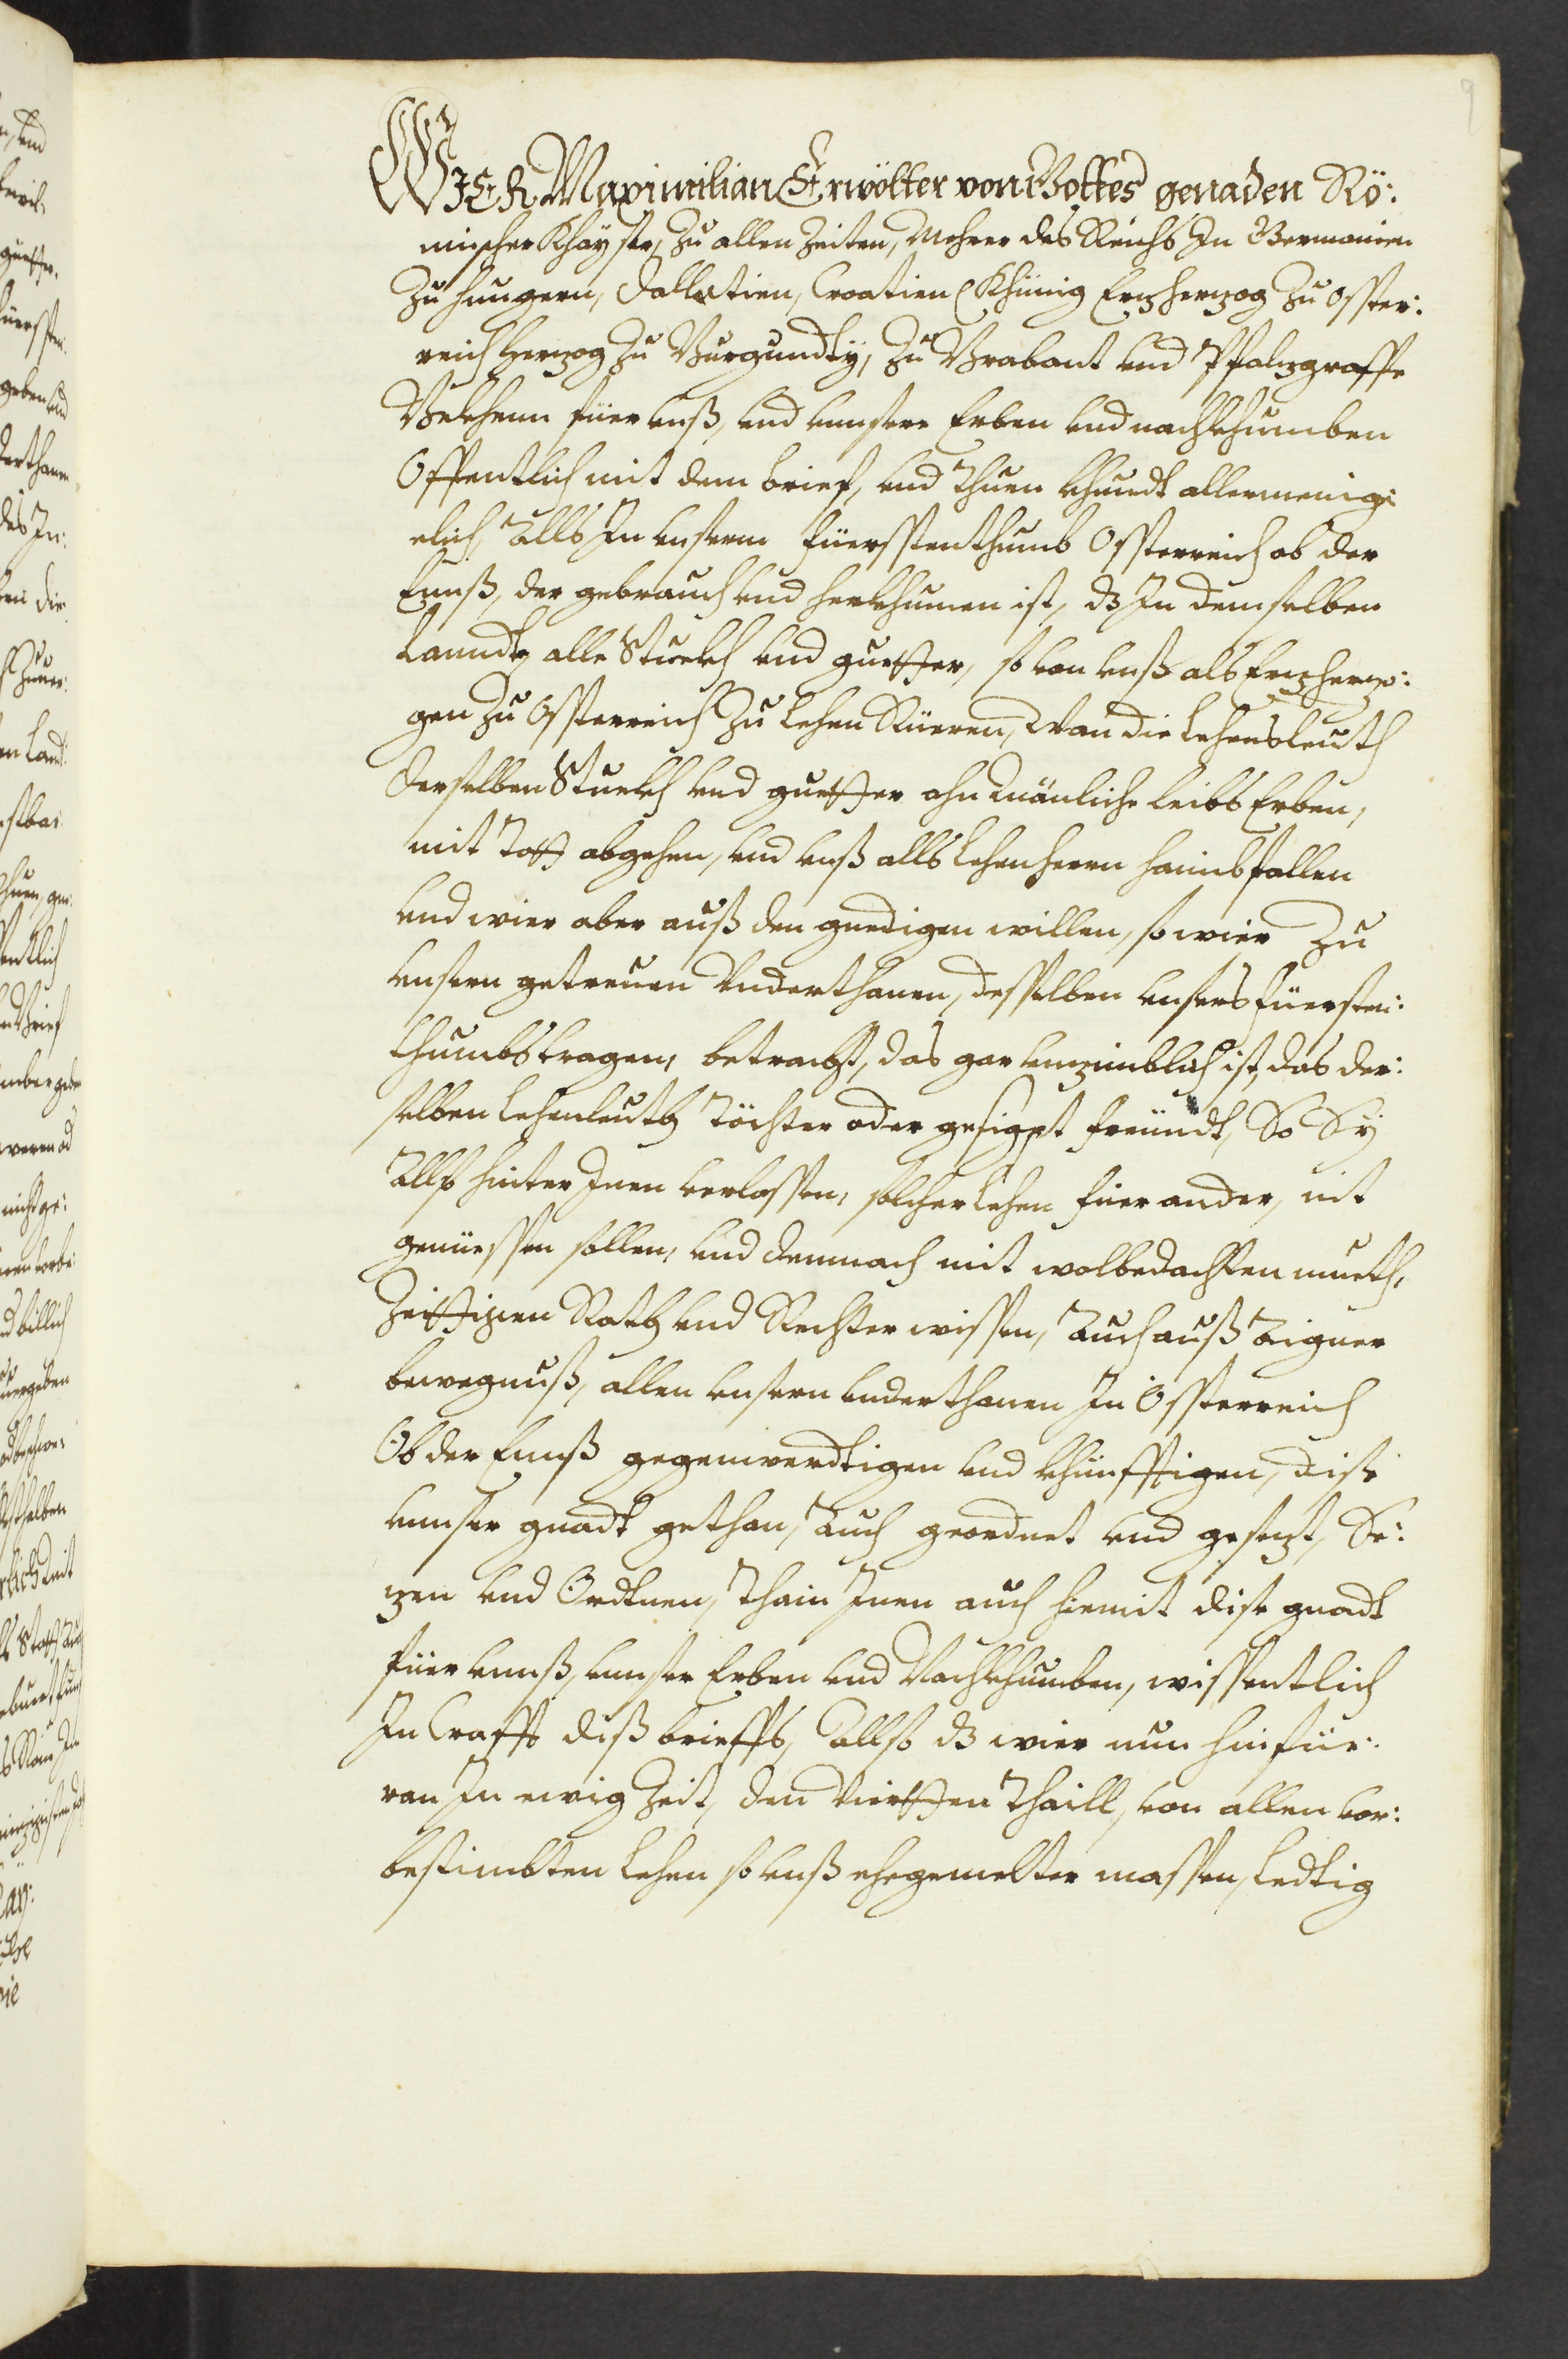 9
WIER Maximilian Erwölter von Gottes genaden Rö:
mischer Khayser, zu allen Zeiten, Mehrer des Reichs In Germanien
zu Hungern, Dallatien, Croatien Khünig Erzherzog zu Osster:
reich Herzog zu Burgundty, zu Brabant vnd Pfalzgraffe
Bekhenn füer vnß, vnd vnnsere Erben vnd nachkhumben
Offentlich mit dem brief, vnd thuen khundt allermenig:
clich, Alls In vnserm füersstenthumb Ossterreich ob der
Ennß, der gebrauch vnd herkhumen ist, dz In demselben
Lanndt, alle Stuckh vnd guetter, so von vnß als Erzherzo:
gen zu Ossterreich zu Lehen Rüeren, Wan die Lehensleuth
Derselben Stuckh vnd guetter ohn Mänliche leibs Erben,
mit Tott abgehen, vnd vnß alls Lehenherrn haimbfallen
vnd wier aber auß den gnedigen willen, so wier Zu
vnsern getreuen Vnderthanen, desselben vnsers füersten:
thumbs tragen, betracht, das gar vnzimblich ist, das der:
selben Lehenleuth Töchter oder gesigpt freündt, So Sÿ
Allso hinter Inen verlassen, solcher Lehen füer ander, nit
genüessen sollen, vnd demnach mit wolbedachten mueth,
Zeittigen Rath vnd Rechter wissen, Auch auß Aigner
bewegnuß, allen vnsern vnderthanen In Ossterreich
Ob der Ennß gegenwerdtigen vnd khünfftigen, dise
vnnser gnadt gethan, Auch geordnet vnd gesezt, Se:
zen vnd Ordtnen, Thain Inen auch hiemit dise gnadt
füer vnnß, vnnser Erben vnd Nachkhumben, wissentlich
In Crafft diß brieffs, Allso dz wier nun hinfür:
ran In ewig Zeit, den Viertten Thaill, von allen vor:
bestimbten Lehen so vnß ehegemelter massen, Ledtig